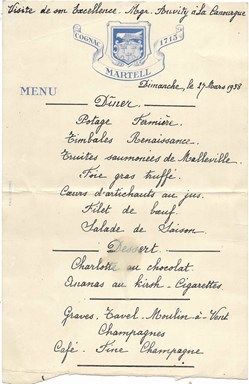 Visite de son Excellence Mgr. Auvity à la Canourgue
COGNAC 1715
MARTELL
Dimanche, le 27 Mars 1938
MENU
Dîner
Potage Fermière.
Timbales Renaissance.
Truites saumonées de Malleville.
Foie gras truffé.
Cœurs d'artichauts au jus.
Filet de bœuf.
Salade de Saison
Dessert.
Charlotte au chocolat.
Ananas au kirsh - Cigarettes.
Graves. Tavel. Moulin-à-Vent
Champagnes
Café. Fine Champagne